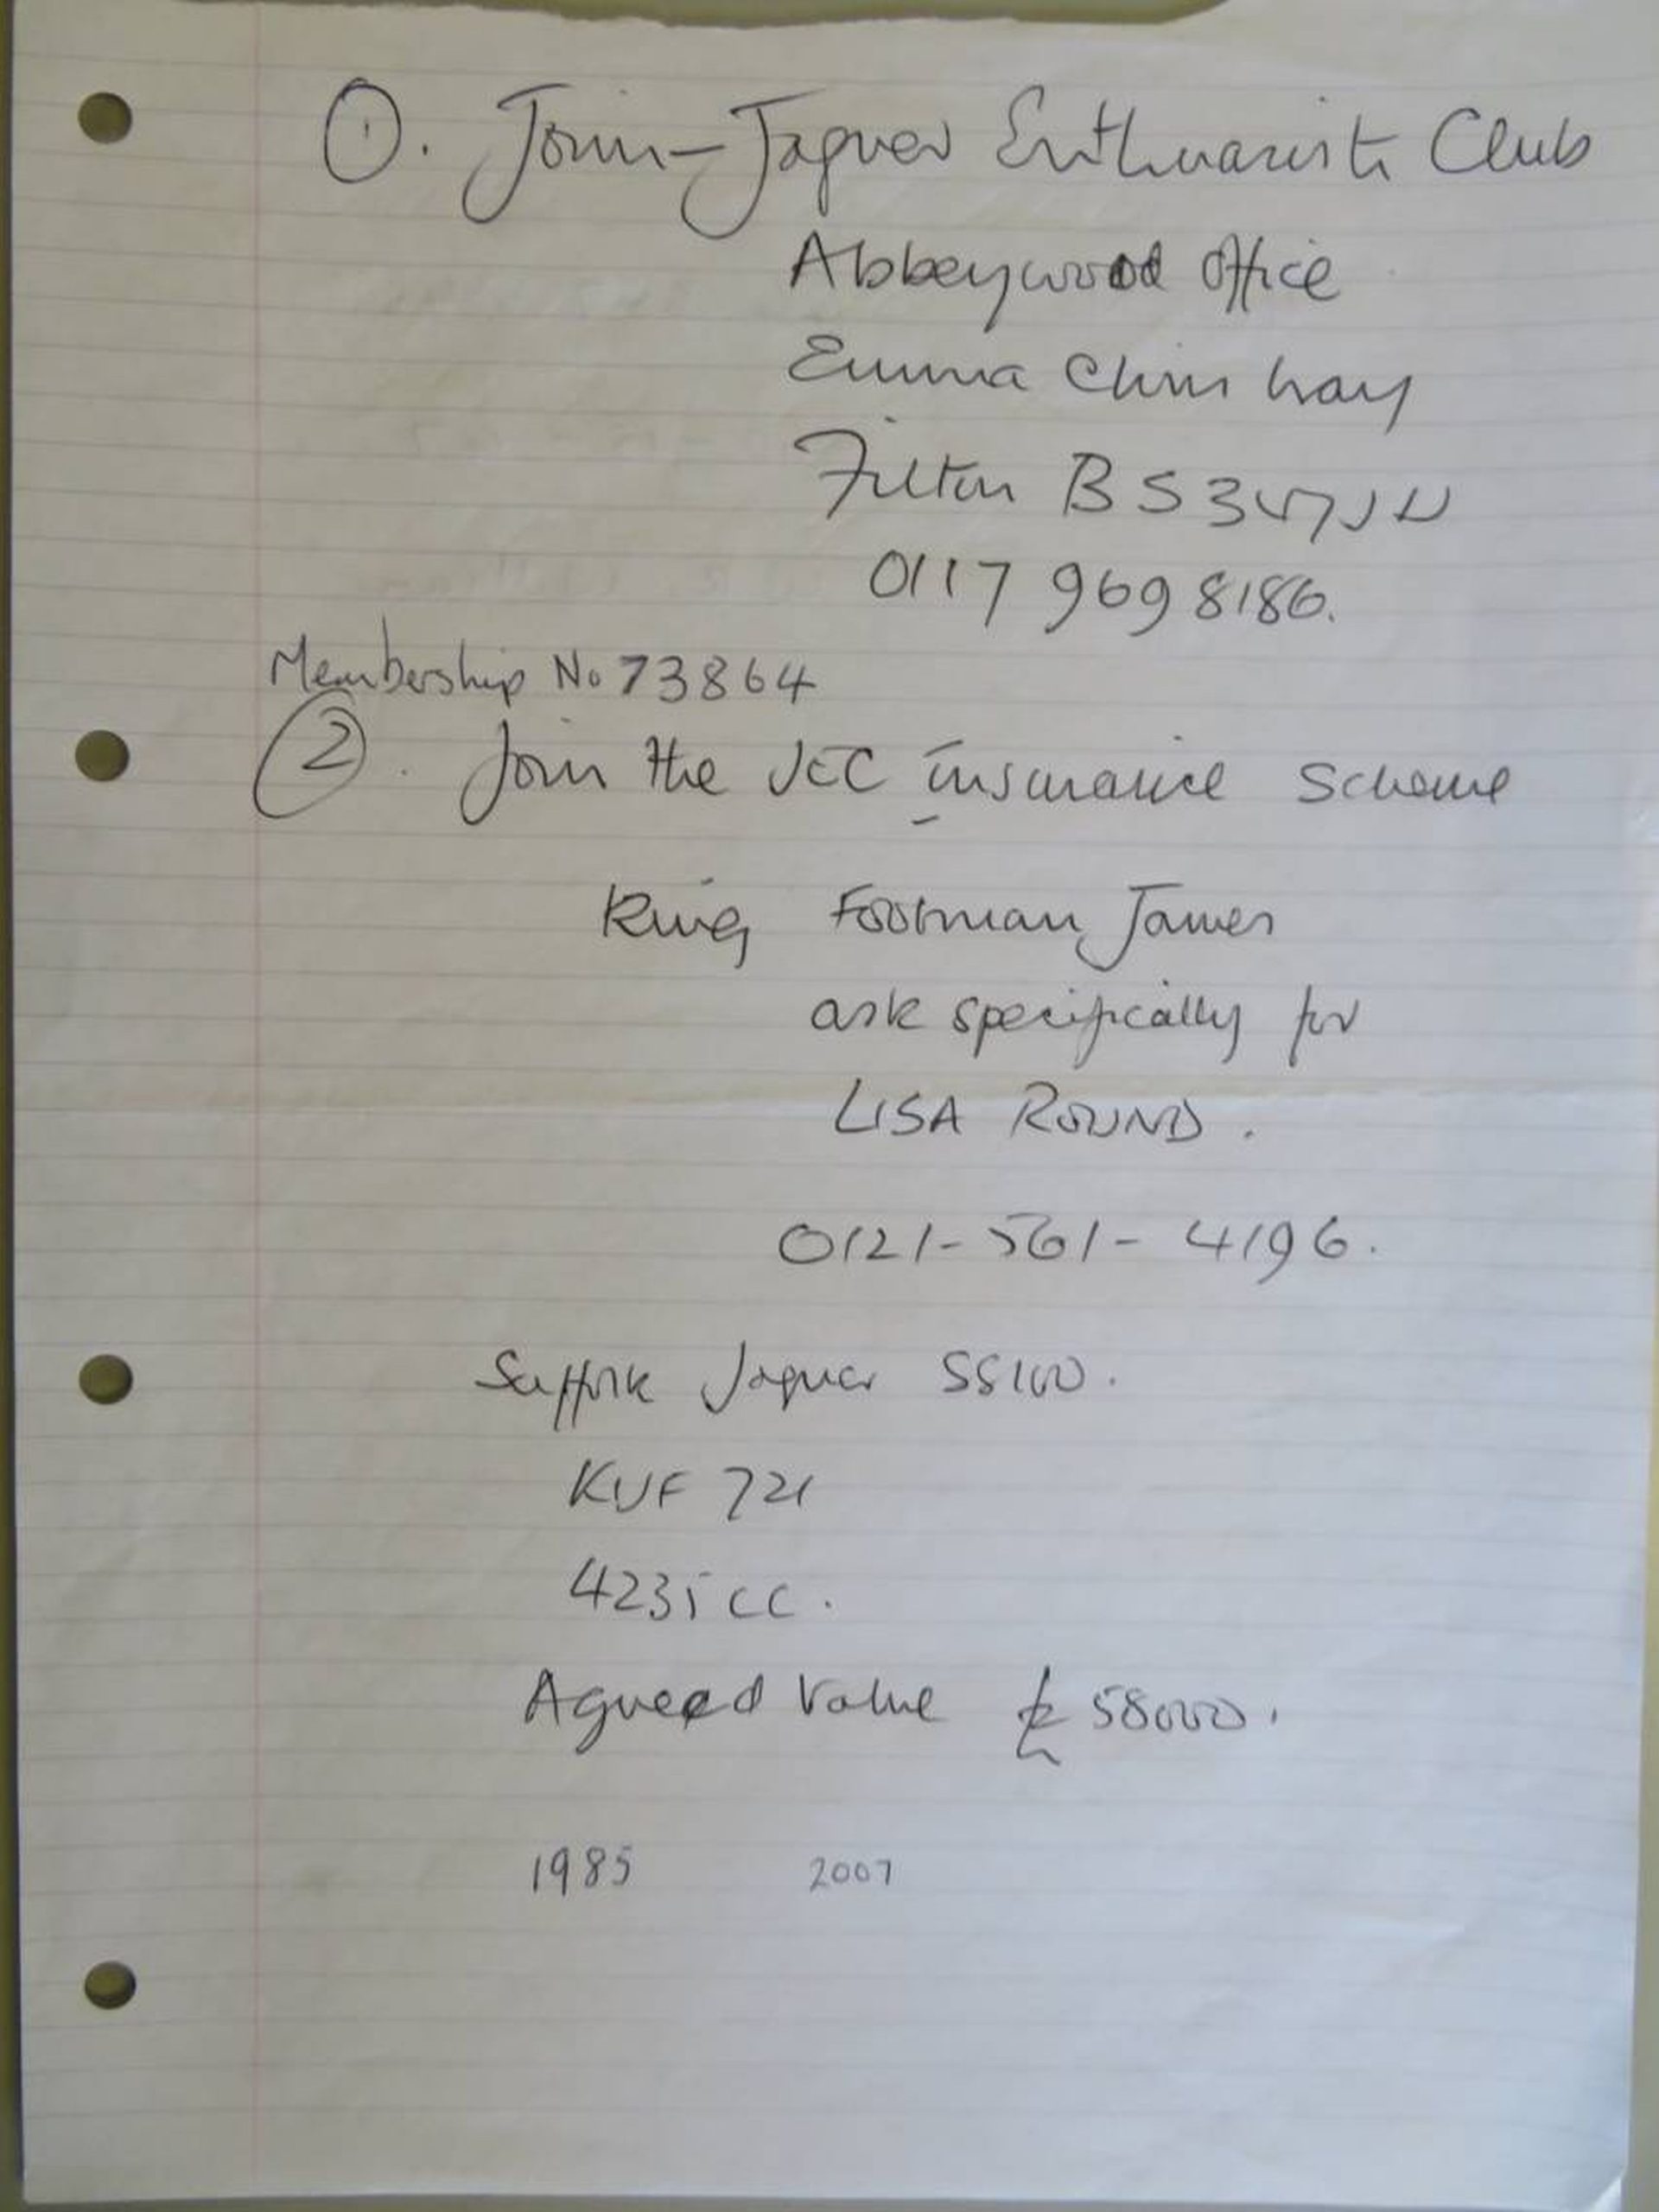 ①. Join - Jaguar Enthusiasts Club
Abbeywood Office
Emma Chris Way
Filton BS34 7JU
0117 969 8186.
Membership No 73864
②. Join the JEC insurance Scheme
Ring Footman James
ask specifically for
LISA ROUND.
0121-561-4196.
Suffolk Jaguar SS100.
KUF 721
4235 cc.
Agreed Value £58000.
1985 2007